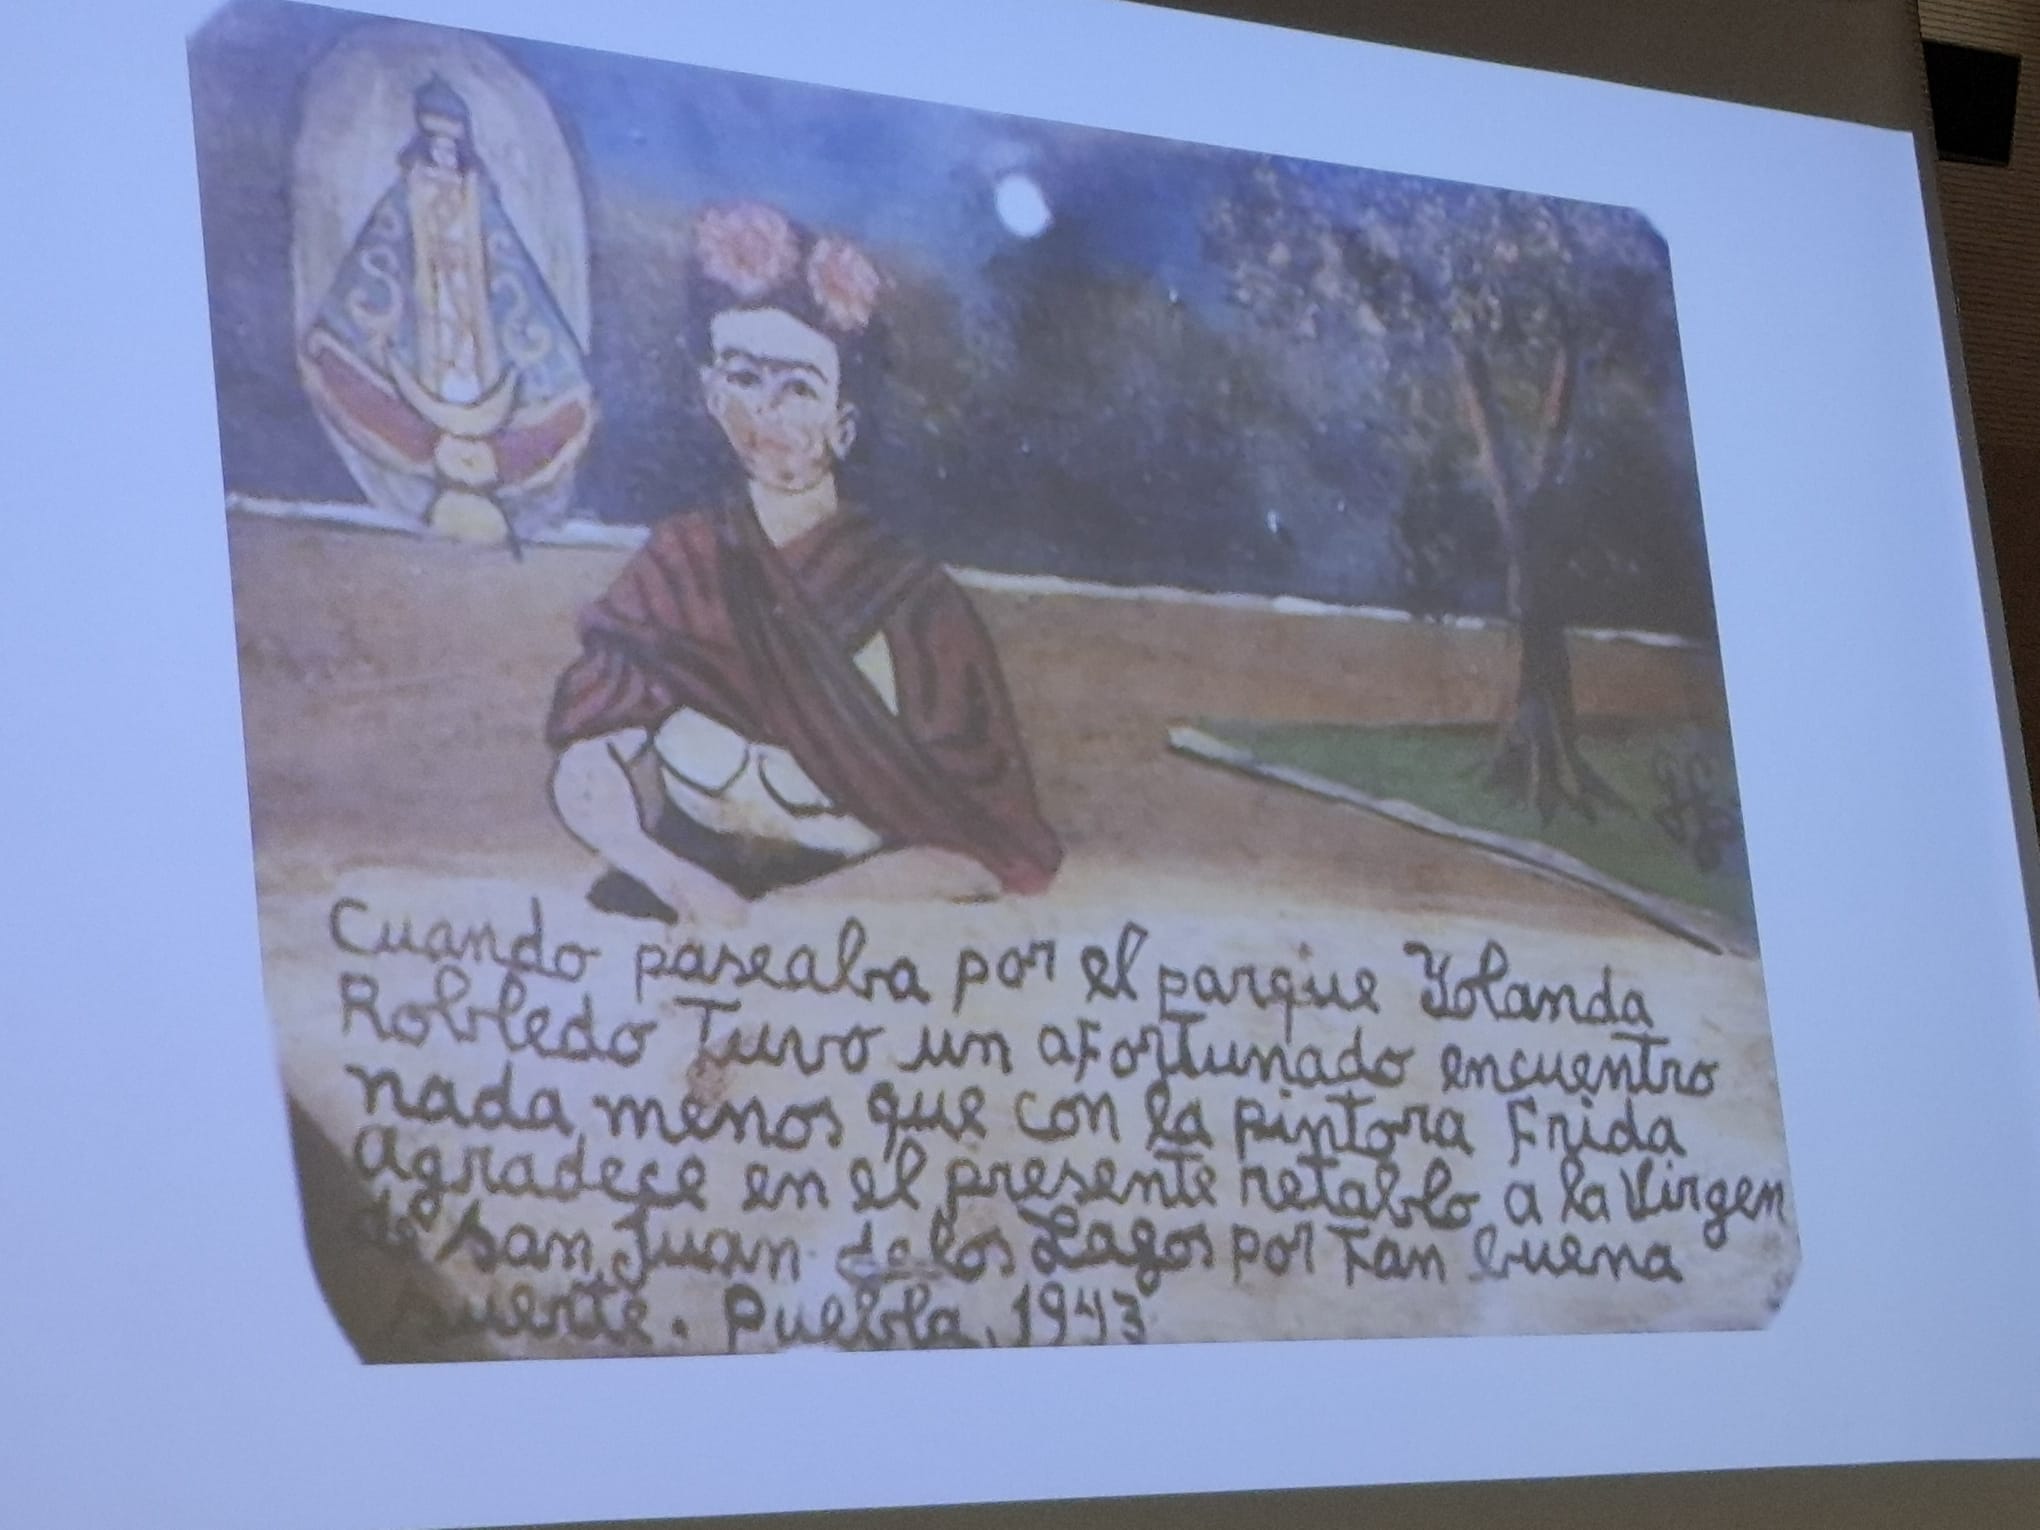 Cuando paseaba por el parque Yolanda
Robledo Tuvo un aFortunado encuentro
nada menos que con la pintora Frida
agradece en el presente retablo a la Virgen
de San Juan de los Lagos por Tan buena
suerte. Puebla, 1943